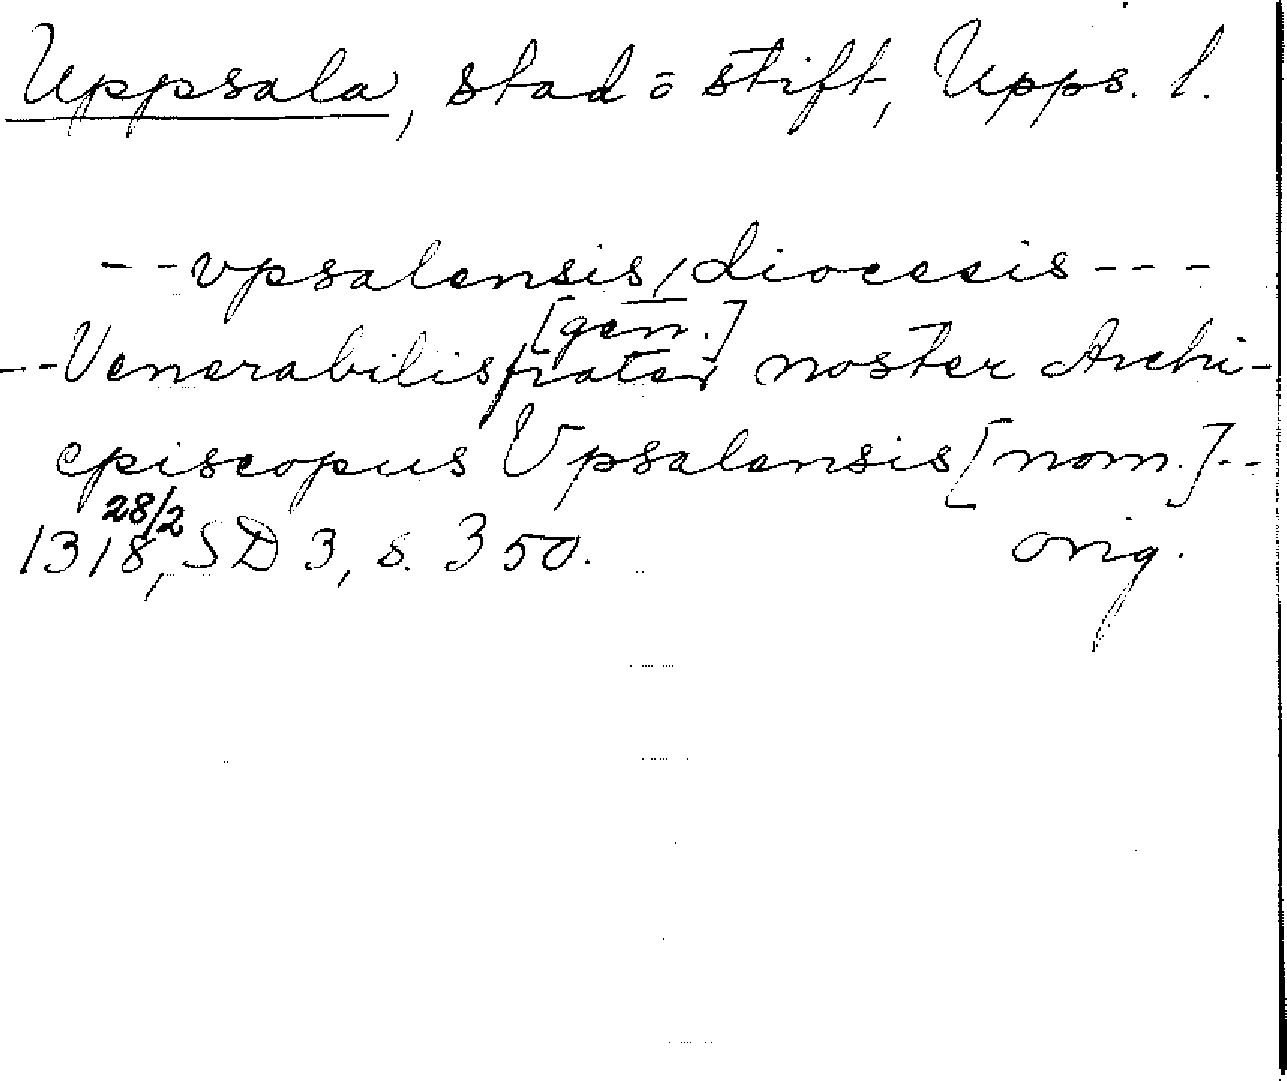 Uppsala, stad o stift, Upps. l.
--vpsalensis/diocesis---
[gen.]
--Venerabilis frater noster Archi-
episcopus Vpsalensis [nom.]--
28/2
1318, SD 3, s. 350. orig.